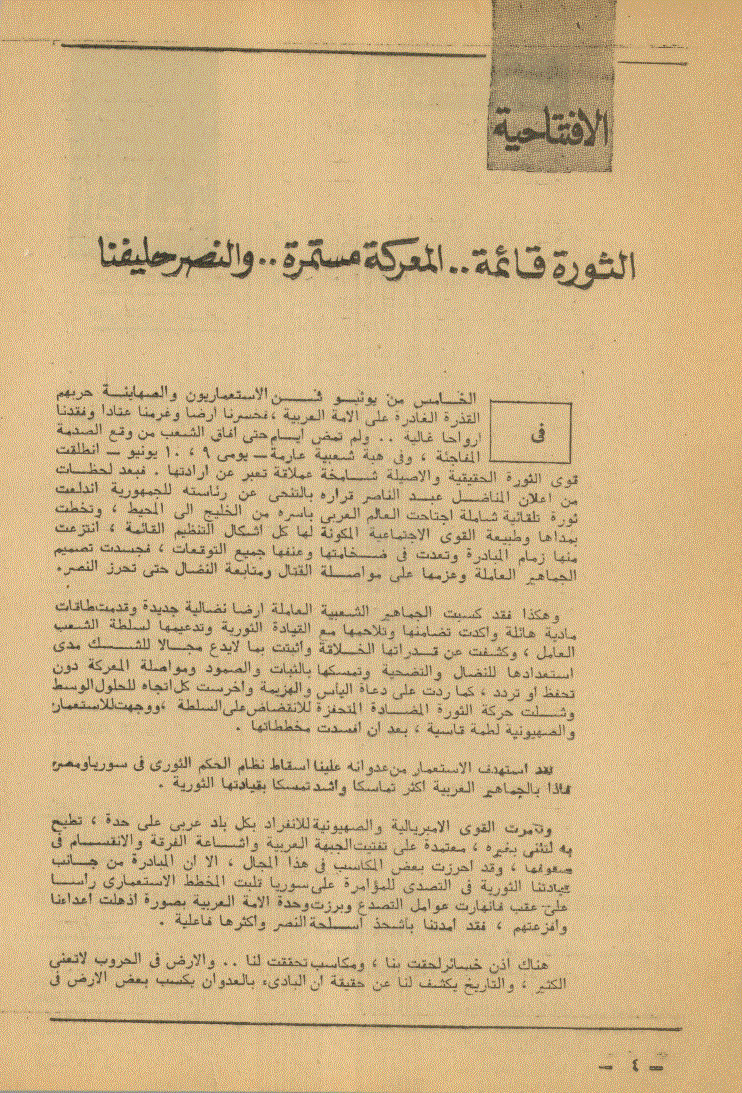 الافتتاحية
الثورة قائمة .. المعركة مستمرة .. والنصر حليفنا
فى
الخامس من يونيو شن الاستعماريون والصهاينة حربهم
القذرة الغادرة على الامة العربية ، فخسرنا ارضا وغرمنا عتادا وفقدنا
ارواحا غالية .. ولم تمض ايام حتى افاق الشعب من وقع الصدمة
المفاجئة ، وفى هبة شعبية عارمة – يومى ٩ ، ١٠ يونيو – انطلقت
قوى الثورة الحقيقية والاصيلة شامخة عملاقة تعبر عن ارادتها . فبعد لحظات
من اعلان المناضل عبد الناصر قراره بالتنحى عن رئاسته للجمهورية اندلعت
ثورة تلقائية شاملة اجتاحت العالم العربى باسره من الخليج الى المحيط ، وتخطت
بمداها وطبيعة القوى الاجتماعية المكونة لها كل اشكال التنظيم القائمة ، انتزعت
منها زمام المبادرة وتعدت فى ضخامتها وعنفها جميع التوقعات ، فجسدت تصميم
الجماهير العاملة وعزمها على مواصلة القتال ومتابعة النضال حتى تحرز النصر.
وهكذا فقد كسبت الجماهير الشعبية العاملة ارضا نضالية جديدة وقدمت طاقات
مادية هائلة واكدت تضامنها وتلاحمها مع القيادة الثورية وتدعيمها لسلطة الشعب
العامل ، وكشفت عن قدراتها الخلاقة واثبتت بما لايدع مجالا للشك مدى
استعدادها للنضال والتضحية وتمسكها بالثبات والصمود ومواصلة المعركة دون
تحفظ او تردد ، كما ردت على دعاة الياس والهزيمة واخرست كل اتجاه للحلول الوسط
وشلت حركة الثورة المضادة المتحفزة للانقضاض على السلطة ، ووجهت للاستعمار
والصهيونية لطمة قاسية ، بعد ان افسدت مخططاتها .
لقد استهدف الاستعمار من عدوانه علينا اسقاط نظام الحكم الثورى فى سوريا ومصر
فاذا بالجماهير العربية اكثر تماسكا واشد تمسكا بقيادتها الثورية .
وتآمرت القوى الامبريالية والصهيونية للانفراد بكل بلد عربى على حدة ، تطيح
به لتثنى بغيره ، معتمدة على تفتيت الجبهة العربية واشاعة الفرقة والانقسام فى
صفوفها ، وقد احرزت بعض المكاسب فى هذا المجال ، الا ان المبادرة من جانب
قيادتنا الثورية فى التصدى للمؤامرة على سوريا قلبت المخطط الاستعمارى راسا
على عقب فانهارت عوامل التصدع وبرزت وحدة الامة العربية بصورة اذهلت اعداءنا
وافزعتهم ، فقد امدتنا باشحذ اسلحة النصر واكثرها فاعلية .
هناك اذن خسائر لحقت بنا ، ومكاسب تحققت لنا .. والارض فى الحروب لاتعنى
الكثير ، والتاريخ يكشف لنا عن حقيقة ان البادىء بالعدوان يكسب بعض الارض فى
– ٤ –